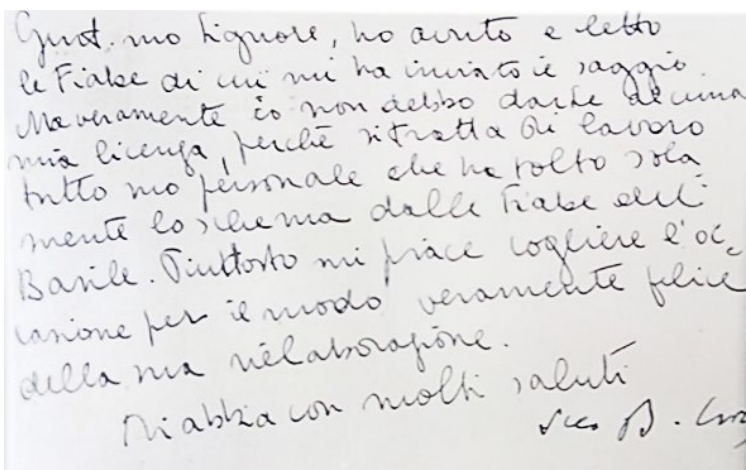 Gent. mo Signore, ho avuto e letto
le Fiabe di cui mi ha inviato il saggio.
Ma veramente io non debbo darle alcuna
mia licenza, perchè si tratta di lavoro
tutto suo personale che ha tolto sola
mente lo schema dalle Fiabe del
Basile. Piuttosto mi piace cogliere l'oc
casione per il modo veramente felice
della sua rielaborazione.
Mi abbia con molti saluti
suo B.